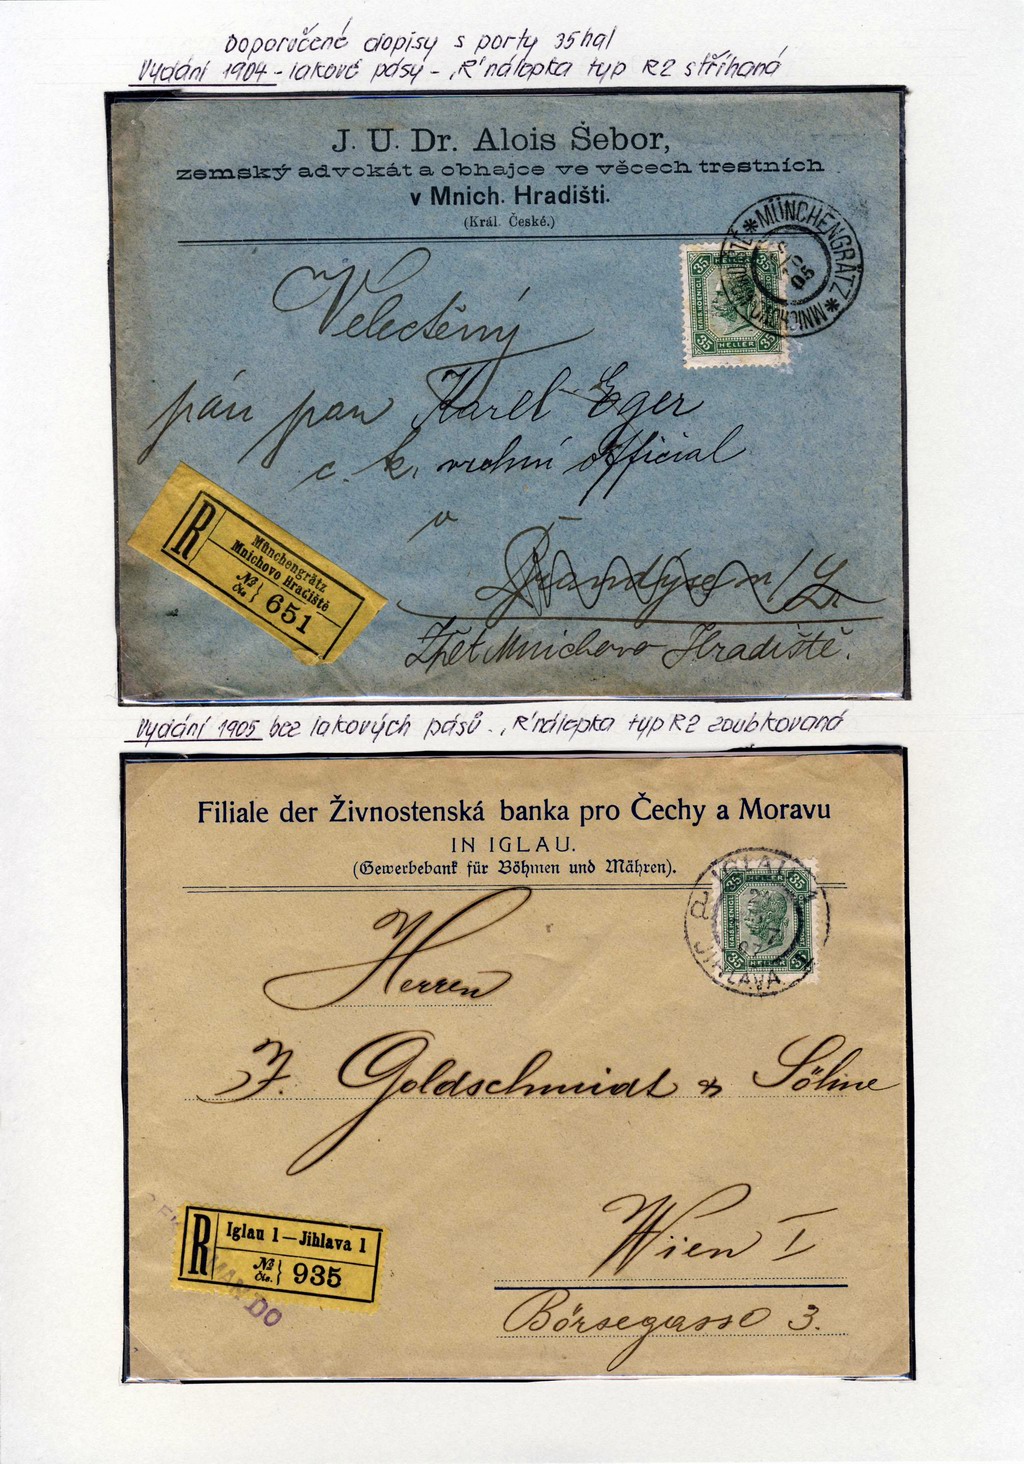 Doporučené dopisy s porty 35hal
Vydání 1904 - lakové pásy - "R" nálepka typ R2 stříhaná
J. U. Dr. Alois Šebor,
zemský advokát a obhajce ve věcech trestních
v Mnich. Hradišti.
(Král. České.)
MÜNCHENGRÄTZ
05
35 HELLER 35
35 HELLER 35
Velectěný
pán pan Karel Eger
c. k. vrchní official
v
Brandýse n/L.
Zpět Mnichovo Hradiště.
R
Münchengrätz
Mnichovo Hradiště
№
Čís.
651
Vydání 1905 bez lakových pásů - "R" nálepka typ R2 zoubkovaná
Filiale der Živnostenská banka pro Čechy a Moravu
IN IGLAU.
(Gewerbebank für Böhmen und Mähren).
IGLAU 1
JIHLAVA 1
07
35 HELLER 35
35 HELLER 35
Herren
J. Goldschmidt & Söhne
Wien I
Börsegasse 3.
R
Iglau 1 — Jihlava 1
№
Čís.
935